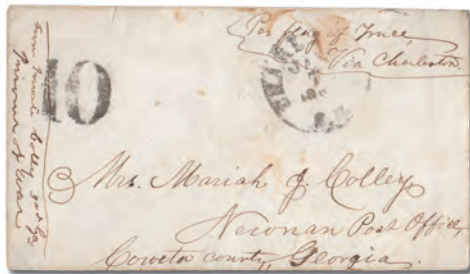 Per flag of Truce,
Via Charleston.
10
Private Colley
Prisoner of War
Mrs. Mariah J. Colley
Newnan Post Office,
Coweta county, Georgia.